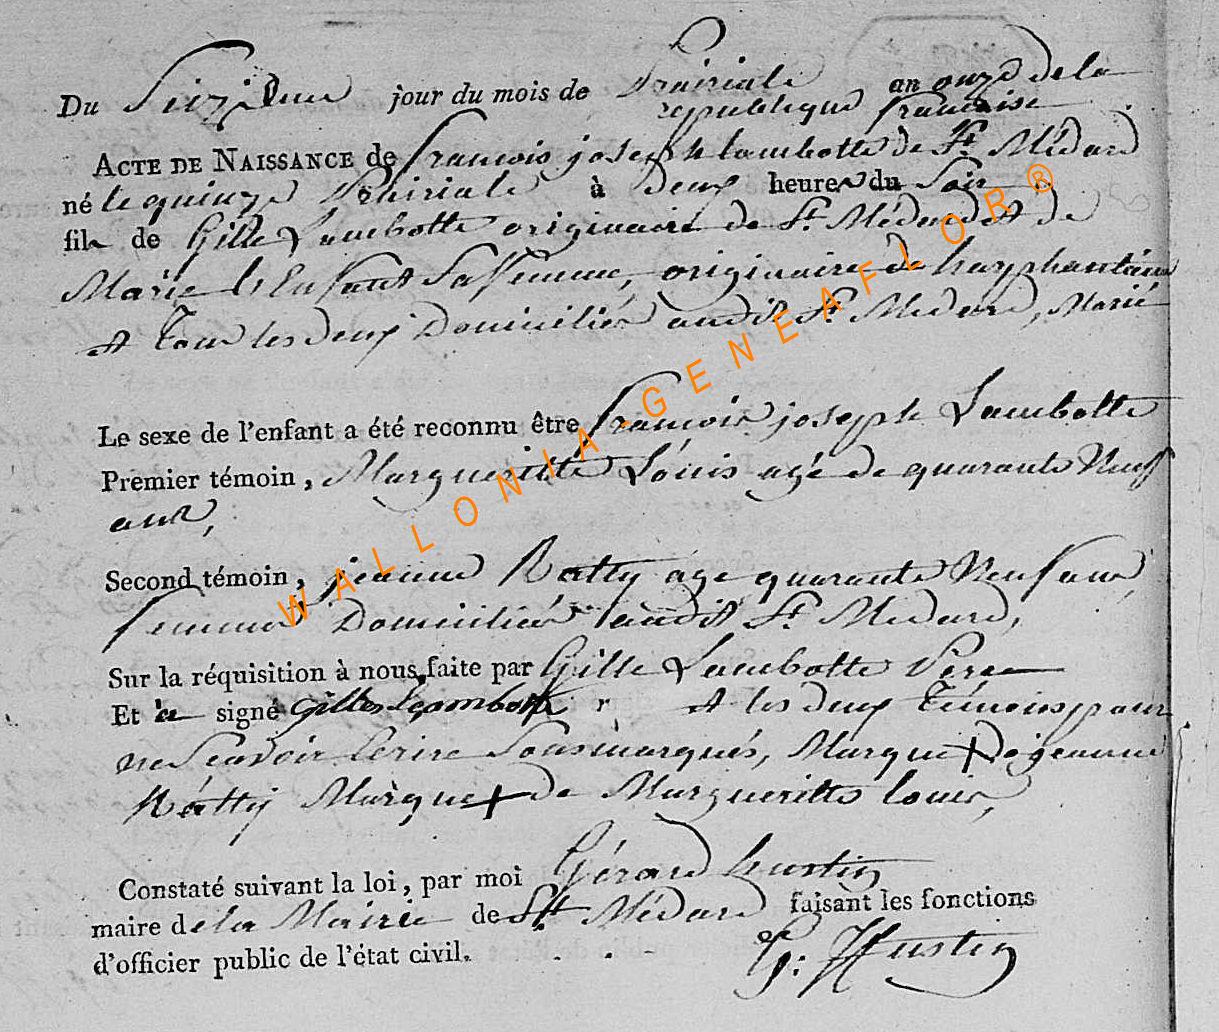 Du Seizieme jour du mois de Prairiale an onze de la
republique francaise
ACTE DE NAISSANCE de francois joseph lambotte de St Médard
né le quinze Prairiale à deux heures du Soir
fils de Gille Lambotte originaire de St Médard et de
Marie l'Enfant Sa femme, originaire de
et Tous les deux Domiciliés audit St Medard, Marié
Le sexe de l'enfant a été reconnu être francois joseph Lambotte
Premier témoin, Margueritte Louis agé de quarante Neuf
ans,
Second témoin, jeanne Ratty age quarante Neuf ans
femmes Domiciliés audit St Medard,
Sur la réquisition à nous faite par Gille Lambotte Pere
Et a signé Gilles lambotte et les deux Témoins pour
ne Scavoir Ecrire Sousmarqués, Marque + de jeanne
Ratty Marque + de Margueritte louis,
Constaté suivant la loi, par moi Gérard hustin
maire de la Mairie de St Médard faisant les fonctions
d'officier public de l'état civil.
G: Hustin
WALLONIA - GENEAFLOR®